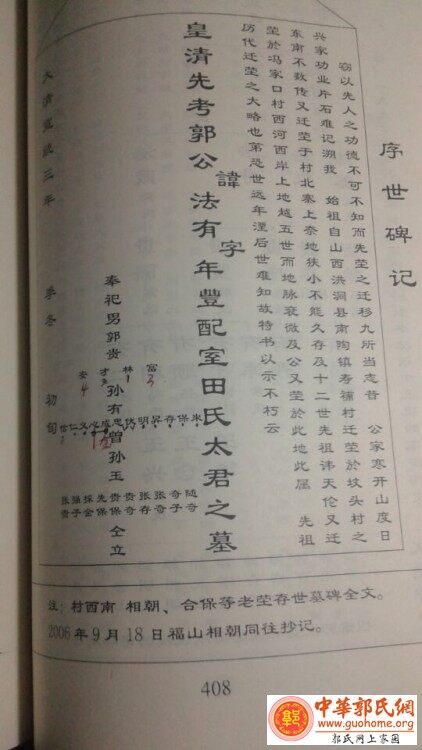 序世碑记
窃以先人之功德不可不知而先茔之迁移九所当志昔 公家寒开山度日
兴家功业片石难记溯我 始祖自山西洪洞县南陶镇寿铺村迁茔於坡头村之
东南不数传又迁茔于村北寨上奈地狭小不能久存及十二世先祖讳天伦又迁
茔於冯家口村西河西岸上地越五世而地脉衰微及公又茔於此地此属 先祖
历代迁茔之大略也第恐世远年湮后世难知故特书以示不朽云
皇清先考郭公 諱法 字有年 豐配室田氏太君之墓
奉祀男郭贵 安 才 林 富 孙有 信仁义心成忠伏明昇存保来 曾孙玉 仝立
大清宣统三年 季冬 初旬
注：村西南 相朝、合保等老茔存世墓碑全文。
2006年9月18日福山相朝同往抄记。
408
中華郭氏網
www.guohome.org
郭氏网上家园